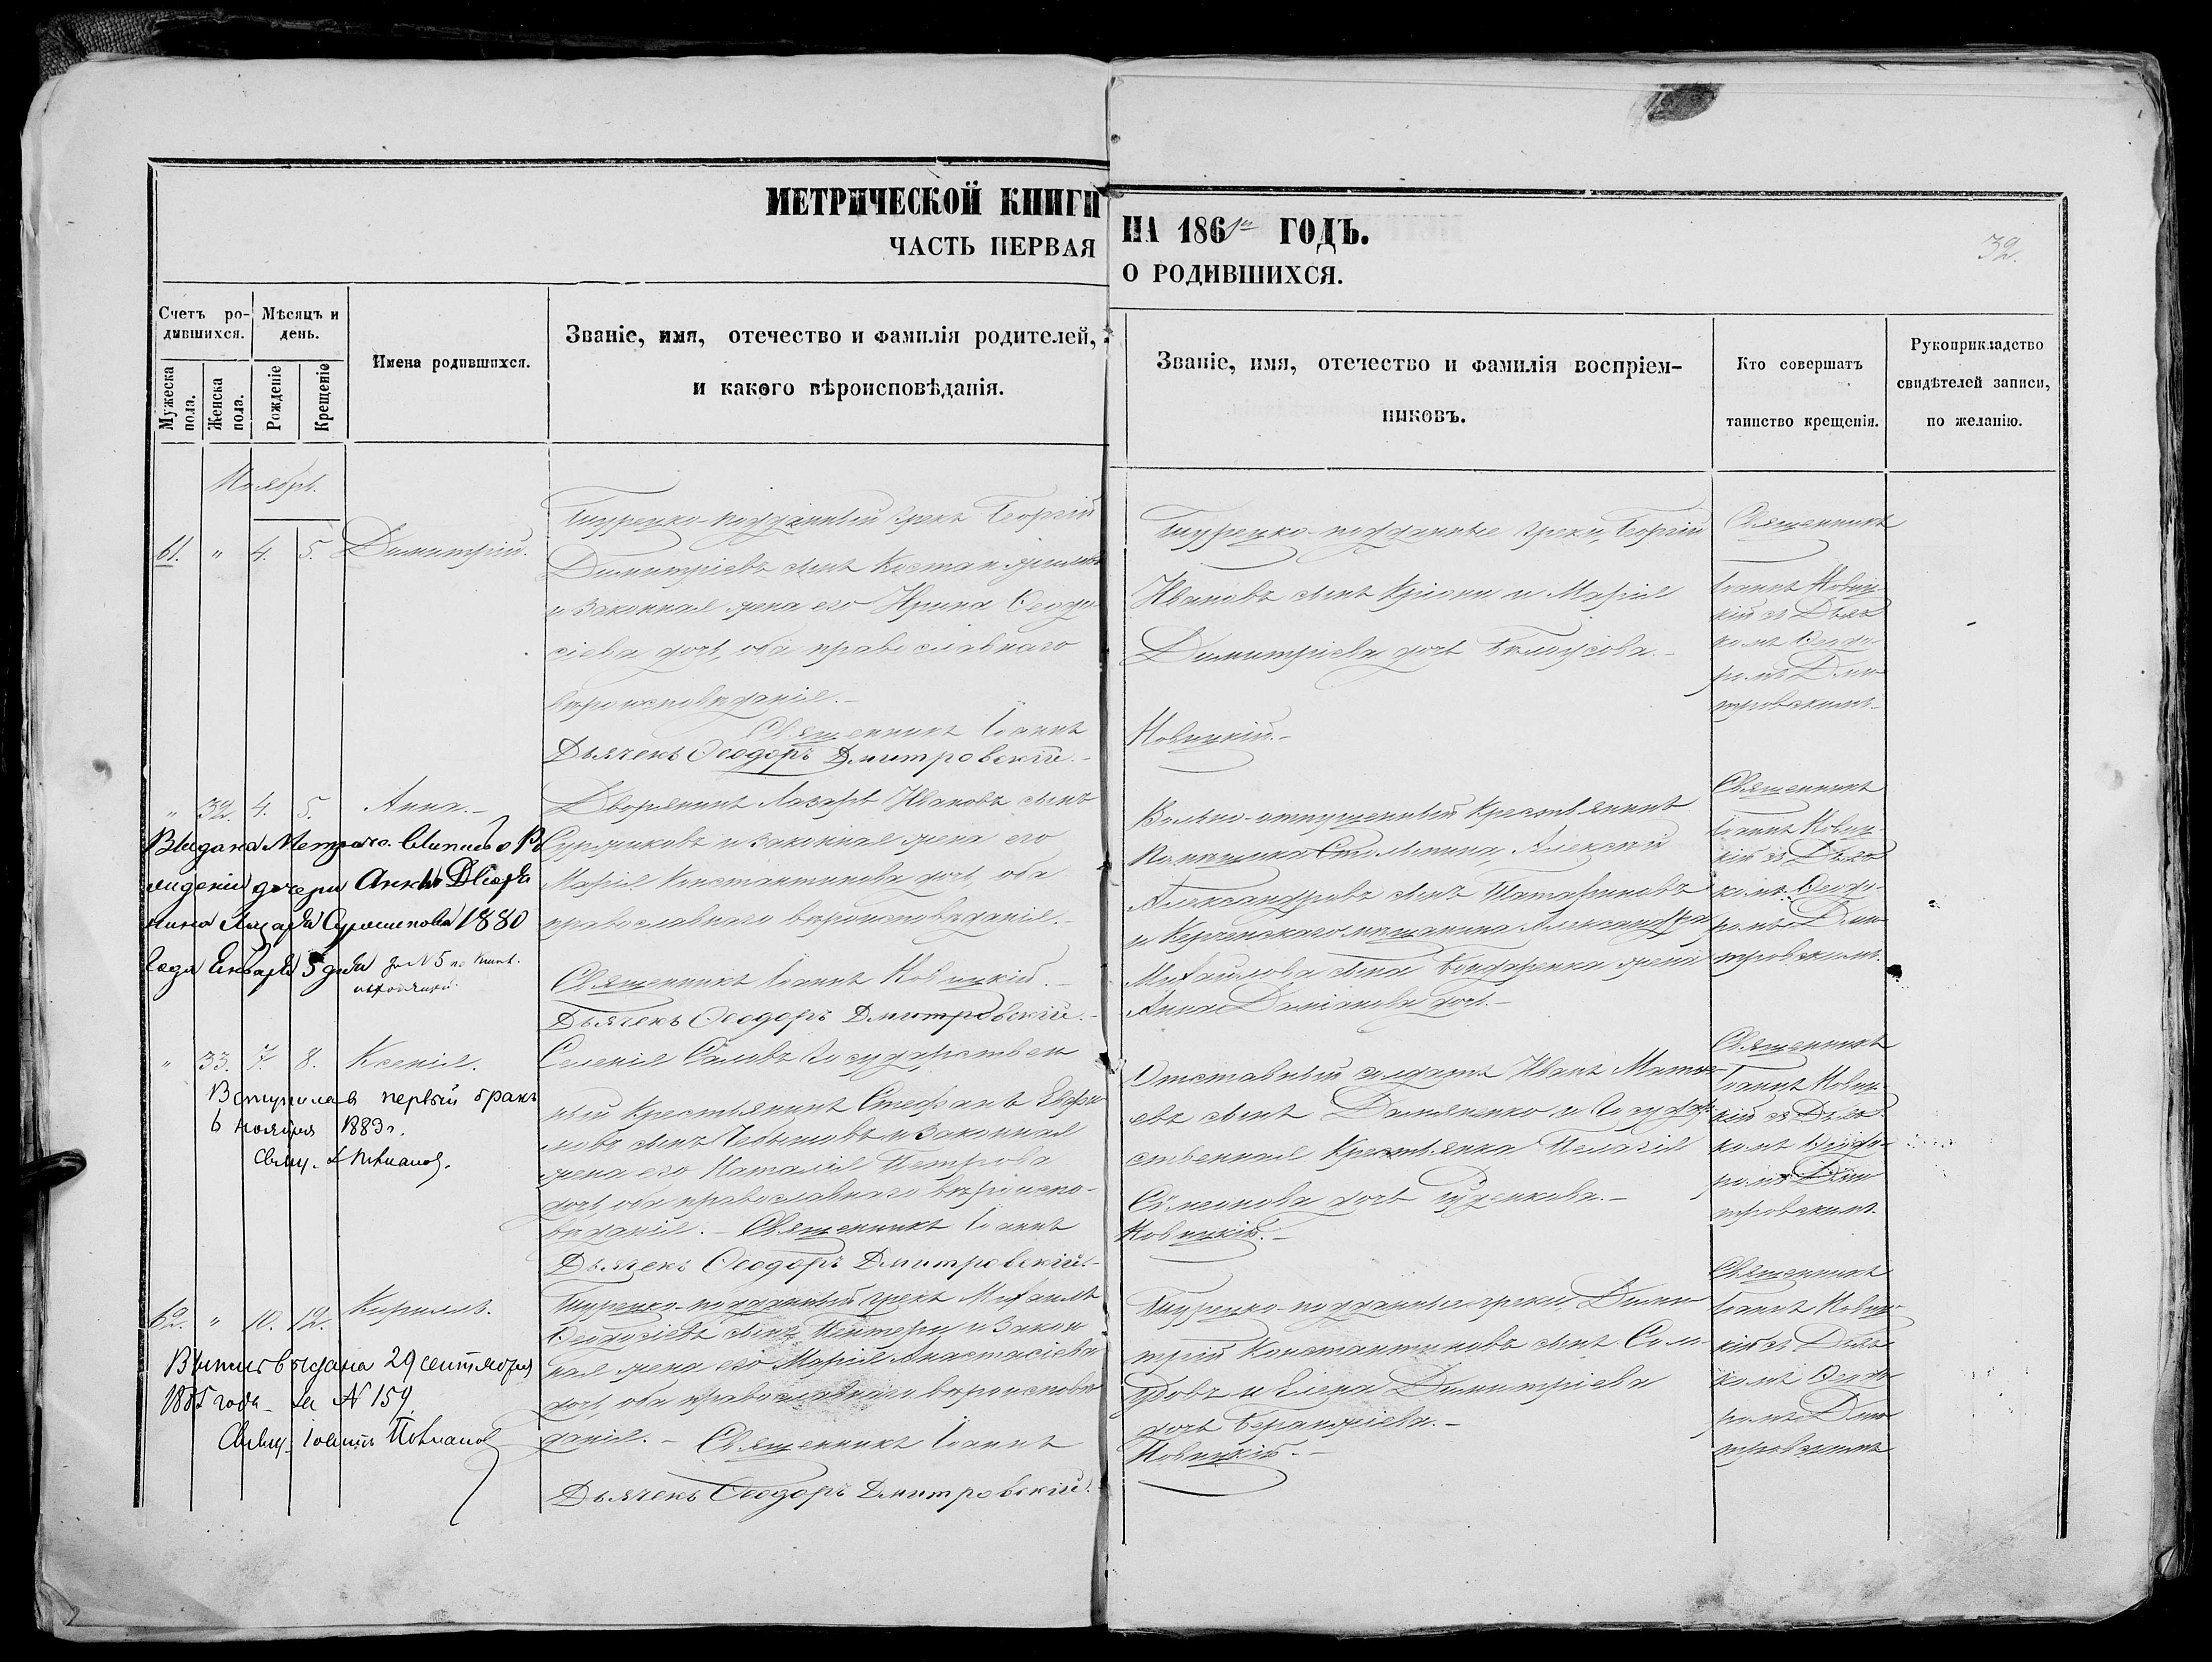 МЕТРИЧЕСКОЙ КНИГИ НА 1861го ГОДЪ.
ЧАСТЬ ПЕРВАЯ О РОДИВШИХСЯ.
32.
Счетъ ро-
дившихся.
Мужеска пола.
Женска пола.
Мѣсяцъ и
день.
Рожденіе
Крещеніе
Имена родившихся.
Званіе, имя, отечество и фамилія родителей,
и какого вѣроисповѣданія.
Званіе, имя, отечество и фамилія воспріем-
никовъ.
Кто совершатъ
таинство крещенія.
Рукоприкладство
свидѣтелей записи,
по желанію.
Ноябрь.
61. " 4. 5. Димитрій.
Турецко-подданный грекъ Георгій
Димитріевъ сынъ
и законная жена его Ирина Ѳеодо-
сіева дочь, оба православнаго
вѣроисповѣданія.-
Священникъ Іоаннъ
Новицкій.-
Дьячекъ Ѳеодоръ Дмитровскій.-
Турецко-подданные греки, Георгій
Ивановъ сынъ и Марія
Димитріева дочь
Священникъ
Іоаннъ Новиц-
кій съ Дьяч-
комъ Ѳеодо-
ромъ Дми-
тровскимъ.
" 32. 4. 5. Анна.-
Выдана Метрич. Выпись о Ро
жденіи дочери Анны Дворя
нина Лазаря 1880
Года Января 5 дня за N 5 по книг.
исходящей.
Дворянинъ Лазарь Ивановъ сынъ
и законная жена его
Марія Константинова дочь, оба
православнаго вѣроисповѣданія.-
Священникъ Іоаннъ Новицкій.-
Дьячекъ Ѳеодоръ Дмитровскій.-
Вольно-отпущенный крестьянинъ
Помѣщика Алексѣй
Александровъ сынъ
и Керченскаго мѣщанина Александра
Михайлова сына Бондаренка жена
Анна Даміанова дочь.-
Священникъ
Іоаннъ Новиц-
кій съ Дьяч-
комъ Ѳеодо-
ромъ Дми-
тровскимъ.
" 33. 7. 8. Ксенія.
Вступила в первый бракъ
6 ноября 1883 г.
Свящ.
Селенія Государствен
ный крестьянинъ Стефанъ
сынъ и законная
жена его Наталія Петрова
дочь, оба православнаго вѣроиспо-
вѣданія.- Священникъ Іоаннъ
Новицкій.-
Дьячекъ Ѳеодоръ Дмитровскій.-
Отставный солдатъ Иванъ
евъ сынъ и Государ-
ственная крестьянка Пелагія
Сѵмеонова дочь
Священникъ
Іоаннъ Новиц-
кій съ Дьяч-
комъ Ѳеодо-
ромъ Дми-
тровскимъ.
62. " 10. 12. Кириллъ.
Выпись выдана 29 сентября
1885 года за N 159.
Свящ. Іоаннъ
Турецко-подданный грекъ Михаилъ
Ѳеодосіевъ сынъ и закон
ная жена его Марія Анастасіева
дочь, оба православнаго вѣроисповѣ-
данія.- Священникъ Іоаннъ
Новицкій.-
Дьячекъ Ѳеодоръ Дмитровскій.
Турецко-подданные греки, Дими-
трій Константиновъ сынъ
и Елена Димитріева
дочь
Священникъ
Іоаннъ Новиц-
кій съ Дьяч-
комъ Ѳеодо-
ромъ Дми-
тровскимъ